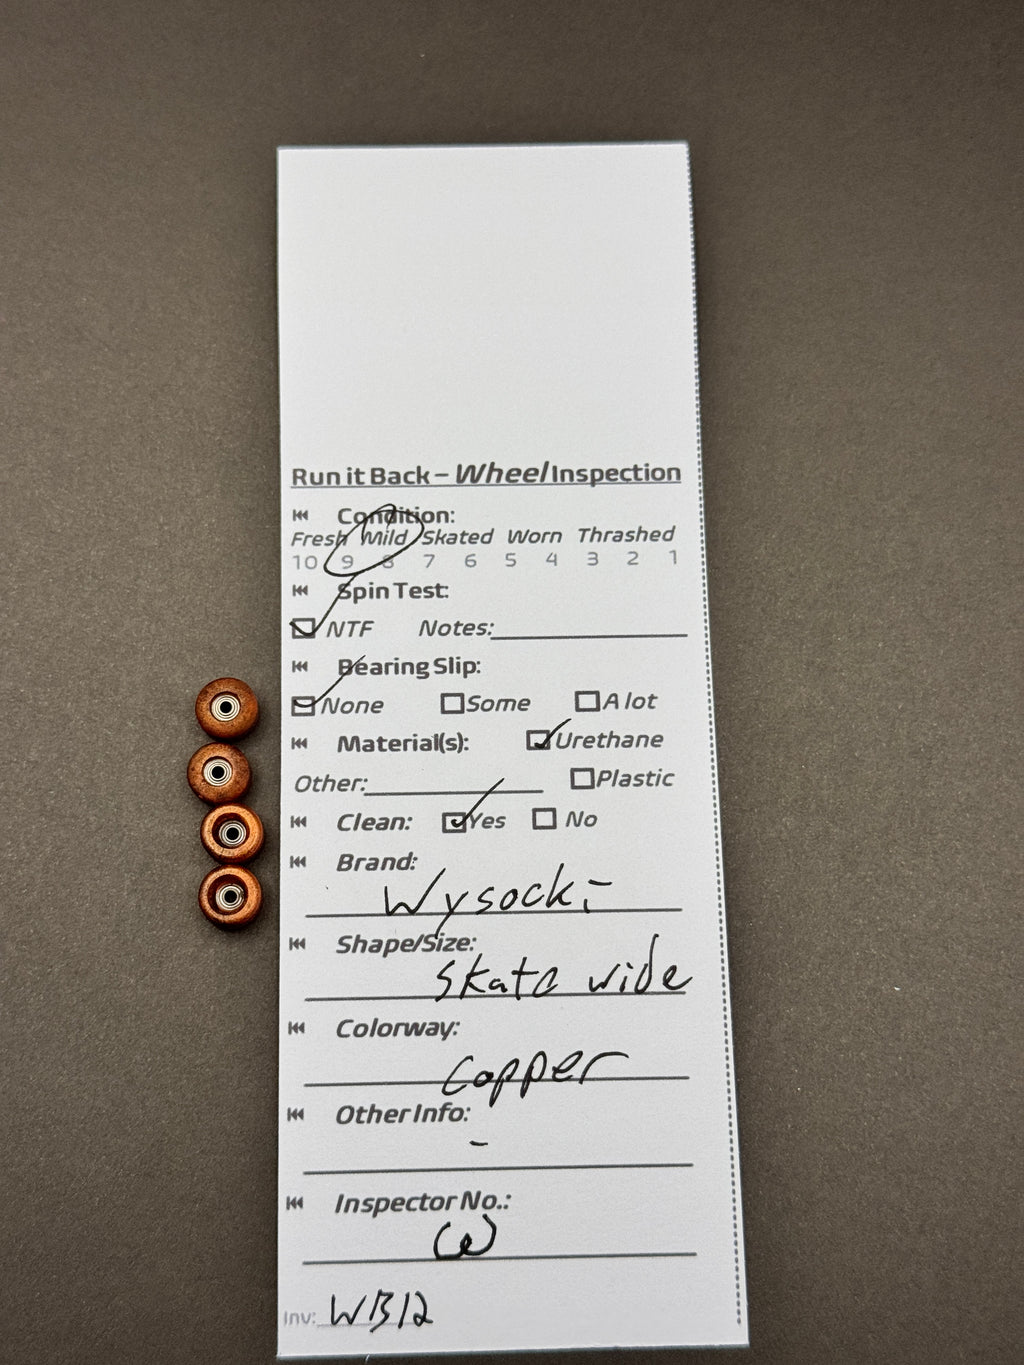 Run it Back – Wheel Inspection
Condition:
Fresh Mild Skated Worn Thrashed
10 9 8 7 6 5 4 3 2 1
Spin Test:
NTF Notes:
Bearing Slip:
None Some A lot
Material(s): Urethane
Other: Plastic
Clean: Yes No
Brand:
Wysocki
Shape/Size:
skate wide
Colorway:
Copper
Other Info:
-
Inspector No.:
Inv: WB12